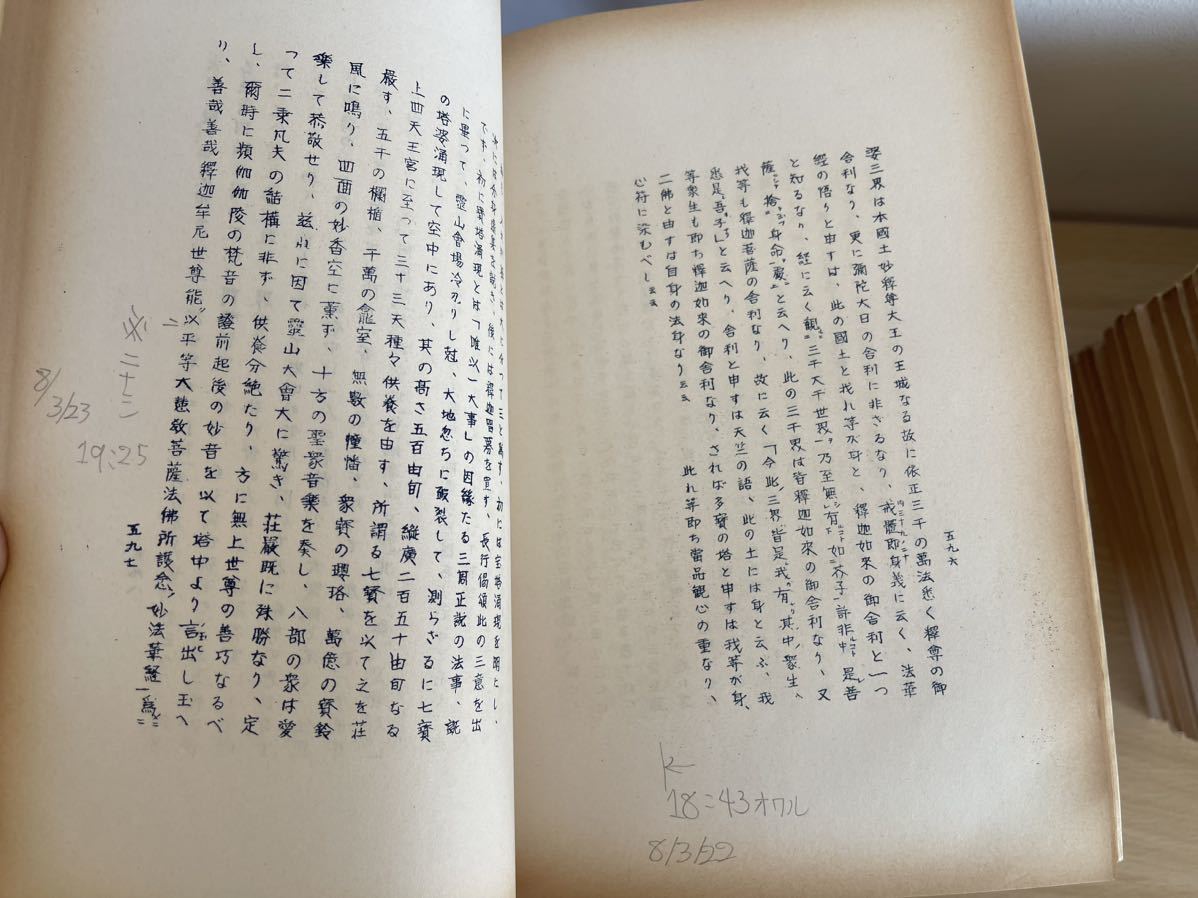 娑三界は本國土妙釋尊大王の王城なる故に依正三千の萬法悉く釋尊の御
舎利なり、更に彌陀大日の舎利に非ざるなり、戒體即身義に云く、法華
經の悟りと申すは、此の國土と我れ等が身と、釋迦如來の御舎利と一つ
と知るなり、経に云く觀三千大千世界乃至無有如芥子許非是菩
薩捨身命處と云へり、此の三千界は皆釋迦如來の御舎利なり、又
我等も釋迦菩薩の舎利なり、故に云く「今此三界皆是我有其中衆生
悉是吾子」と云へり、舎利と申すは天竺の語、此の土には身と云ふ、我
等衆生も即ち釋迦如來の御舎利なり、されば多寶の塔と申すは我等が身、
二佛と申すは自身の法身なり云云 此れ等即ち當品観心の重なり、
心符に染むべし云云
五九六
18:43オワル
8/3/22
後には釋迦唱募を宣す、長行偈頌此の三意を出
です、初に寶塔涌現とは「唯以一大事」の因縁たる三周正説の法事、説
に墨って、靈山會場冷 りし 、大地忽ちに破裂して、測らざるに七寶
の塔婆涌現して空中にあり、其の高さ五百由旬、縱廣二百五十由旬なる
上四天王宮に至って三十三天種々供養を由す、所謂る七寶を以て之を莊
嚴す、五千の欄楯、千萬の龕室、無數の幢幡、衆寶の瓔珞、萬億の寶鈴
風に鳴り、四面の妙香空に薫ず、十方の聖衆音樂を奏し、八部の衆は愛
樂して恭敬せり、玆れに因て靈山大會大に驚き、莊嚴既に殊勝なり、定
って二乗凡夫の結構に非ず、供養分絶たり、方に無上世尊の善巧なるべ
し、爾時に頻伽伽陵の梵音の證前起後の妙音を以て塔中より言出し玉へ
り、善哉善哉釋迦牟尼世尊能以平等大慧敎菩薩法佛所護念妙法華経爲
五九七
二十三
8/3/23
19:25